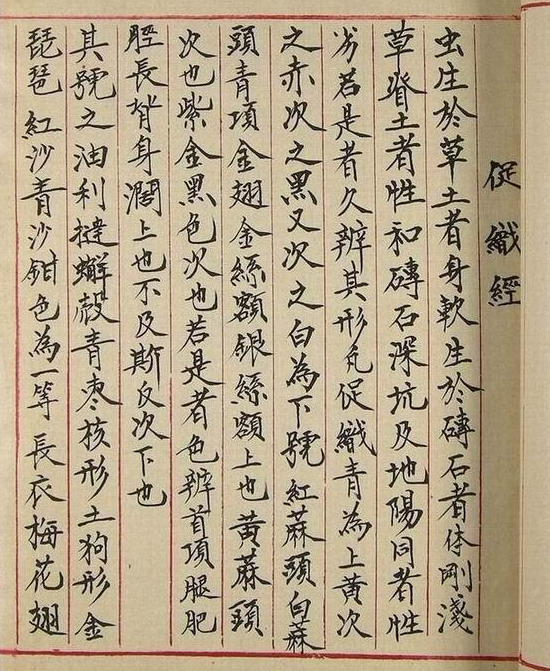 促織經
虫生於草土者身軟生於磚石者体剛淺
草脊土者性和磚石深坑及地陽向者性
劣若是者久辨其形色促織青為上黃次
之赤次之黑又次之白為下號紅蔴頭白蔴
頭青項金翅金絲額銀絲額上也黃蔴頭
次也紫金黑色次也若是者色辨首項腿肥
脛長背身濶上也不及斯反次下也
其號之油利撻蠏殼青枣核形土狗形金
琵琶紅沙青沙鉗色為一等長衣梅花翅